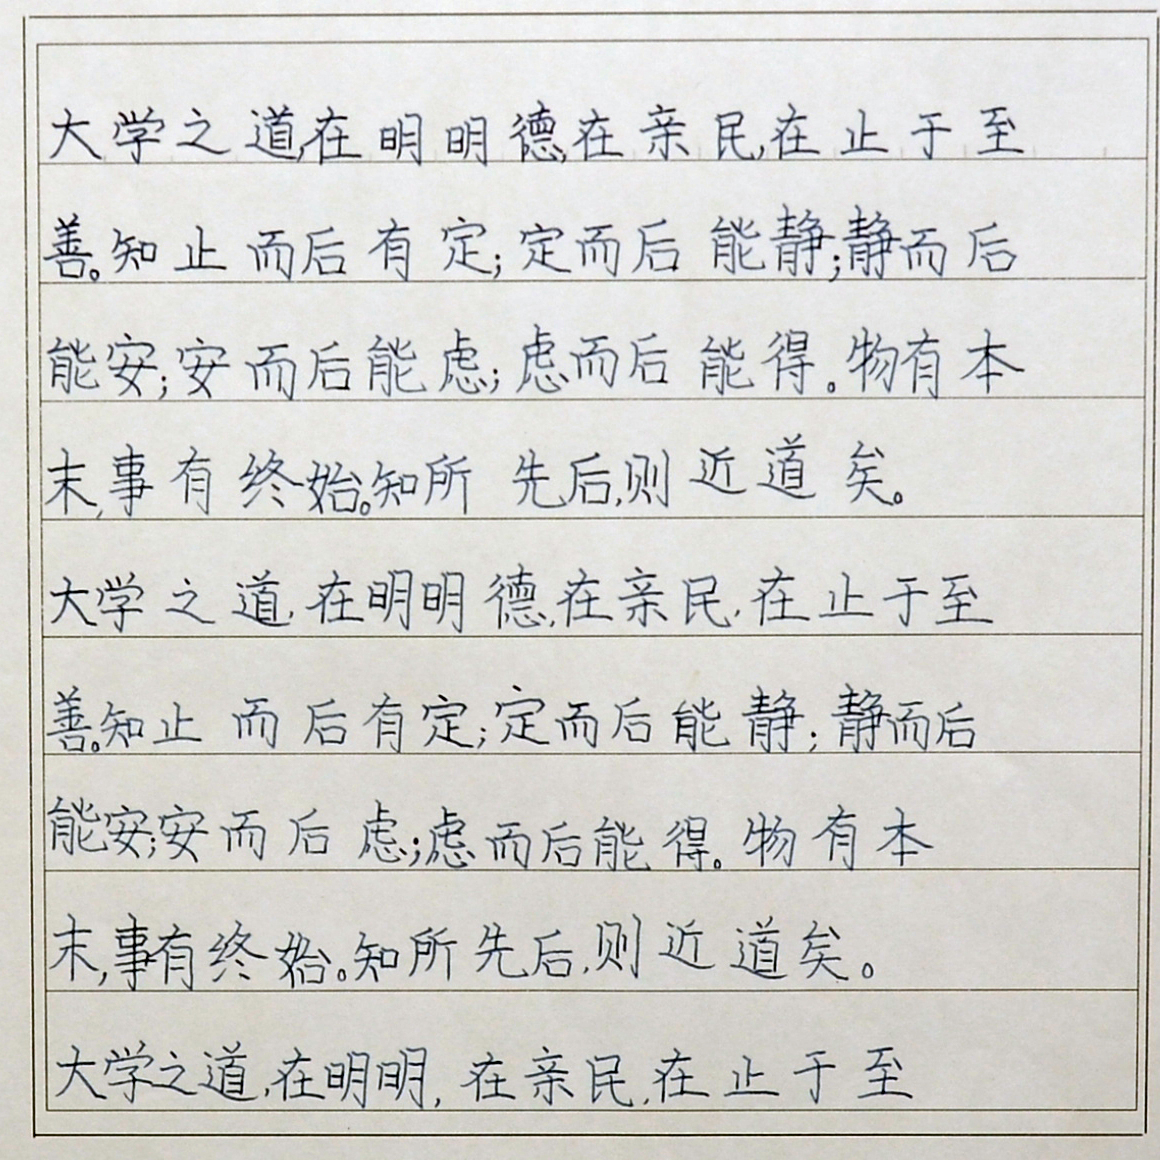 大学之道,在明明德,在亲民,在止于至
善。知止而后有定;定而后能静;静而后
能安;安而后能虑;虑而后能得。物有本
末,事有终始。知所先后,则近道矣。
大学之道,在明明德,在亲民,在止于至
善。知止而后有定;定而后能静;静而后
能安;安而后虑;虑而后能得。物有本
末,事有终始。知所先后,则近道矣。
大学之道,在明明,在亲民,在止于至